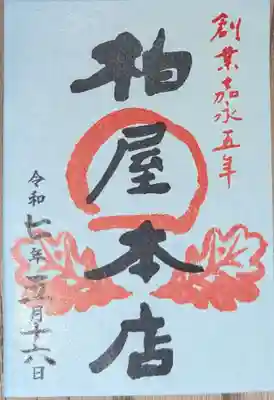 創業嘉永五年
柏屋本店
令和七年 月 日